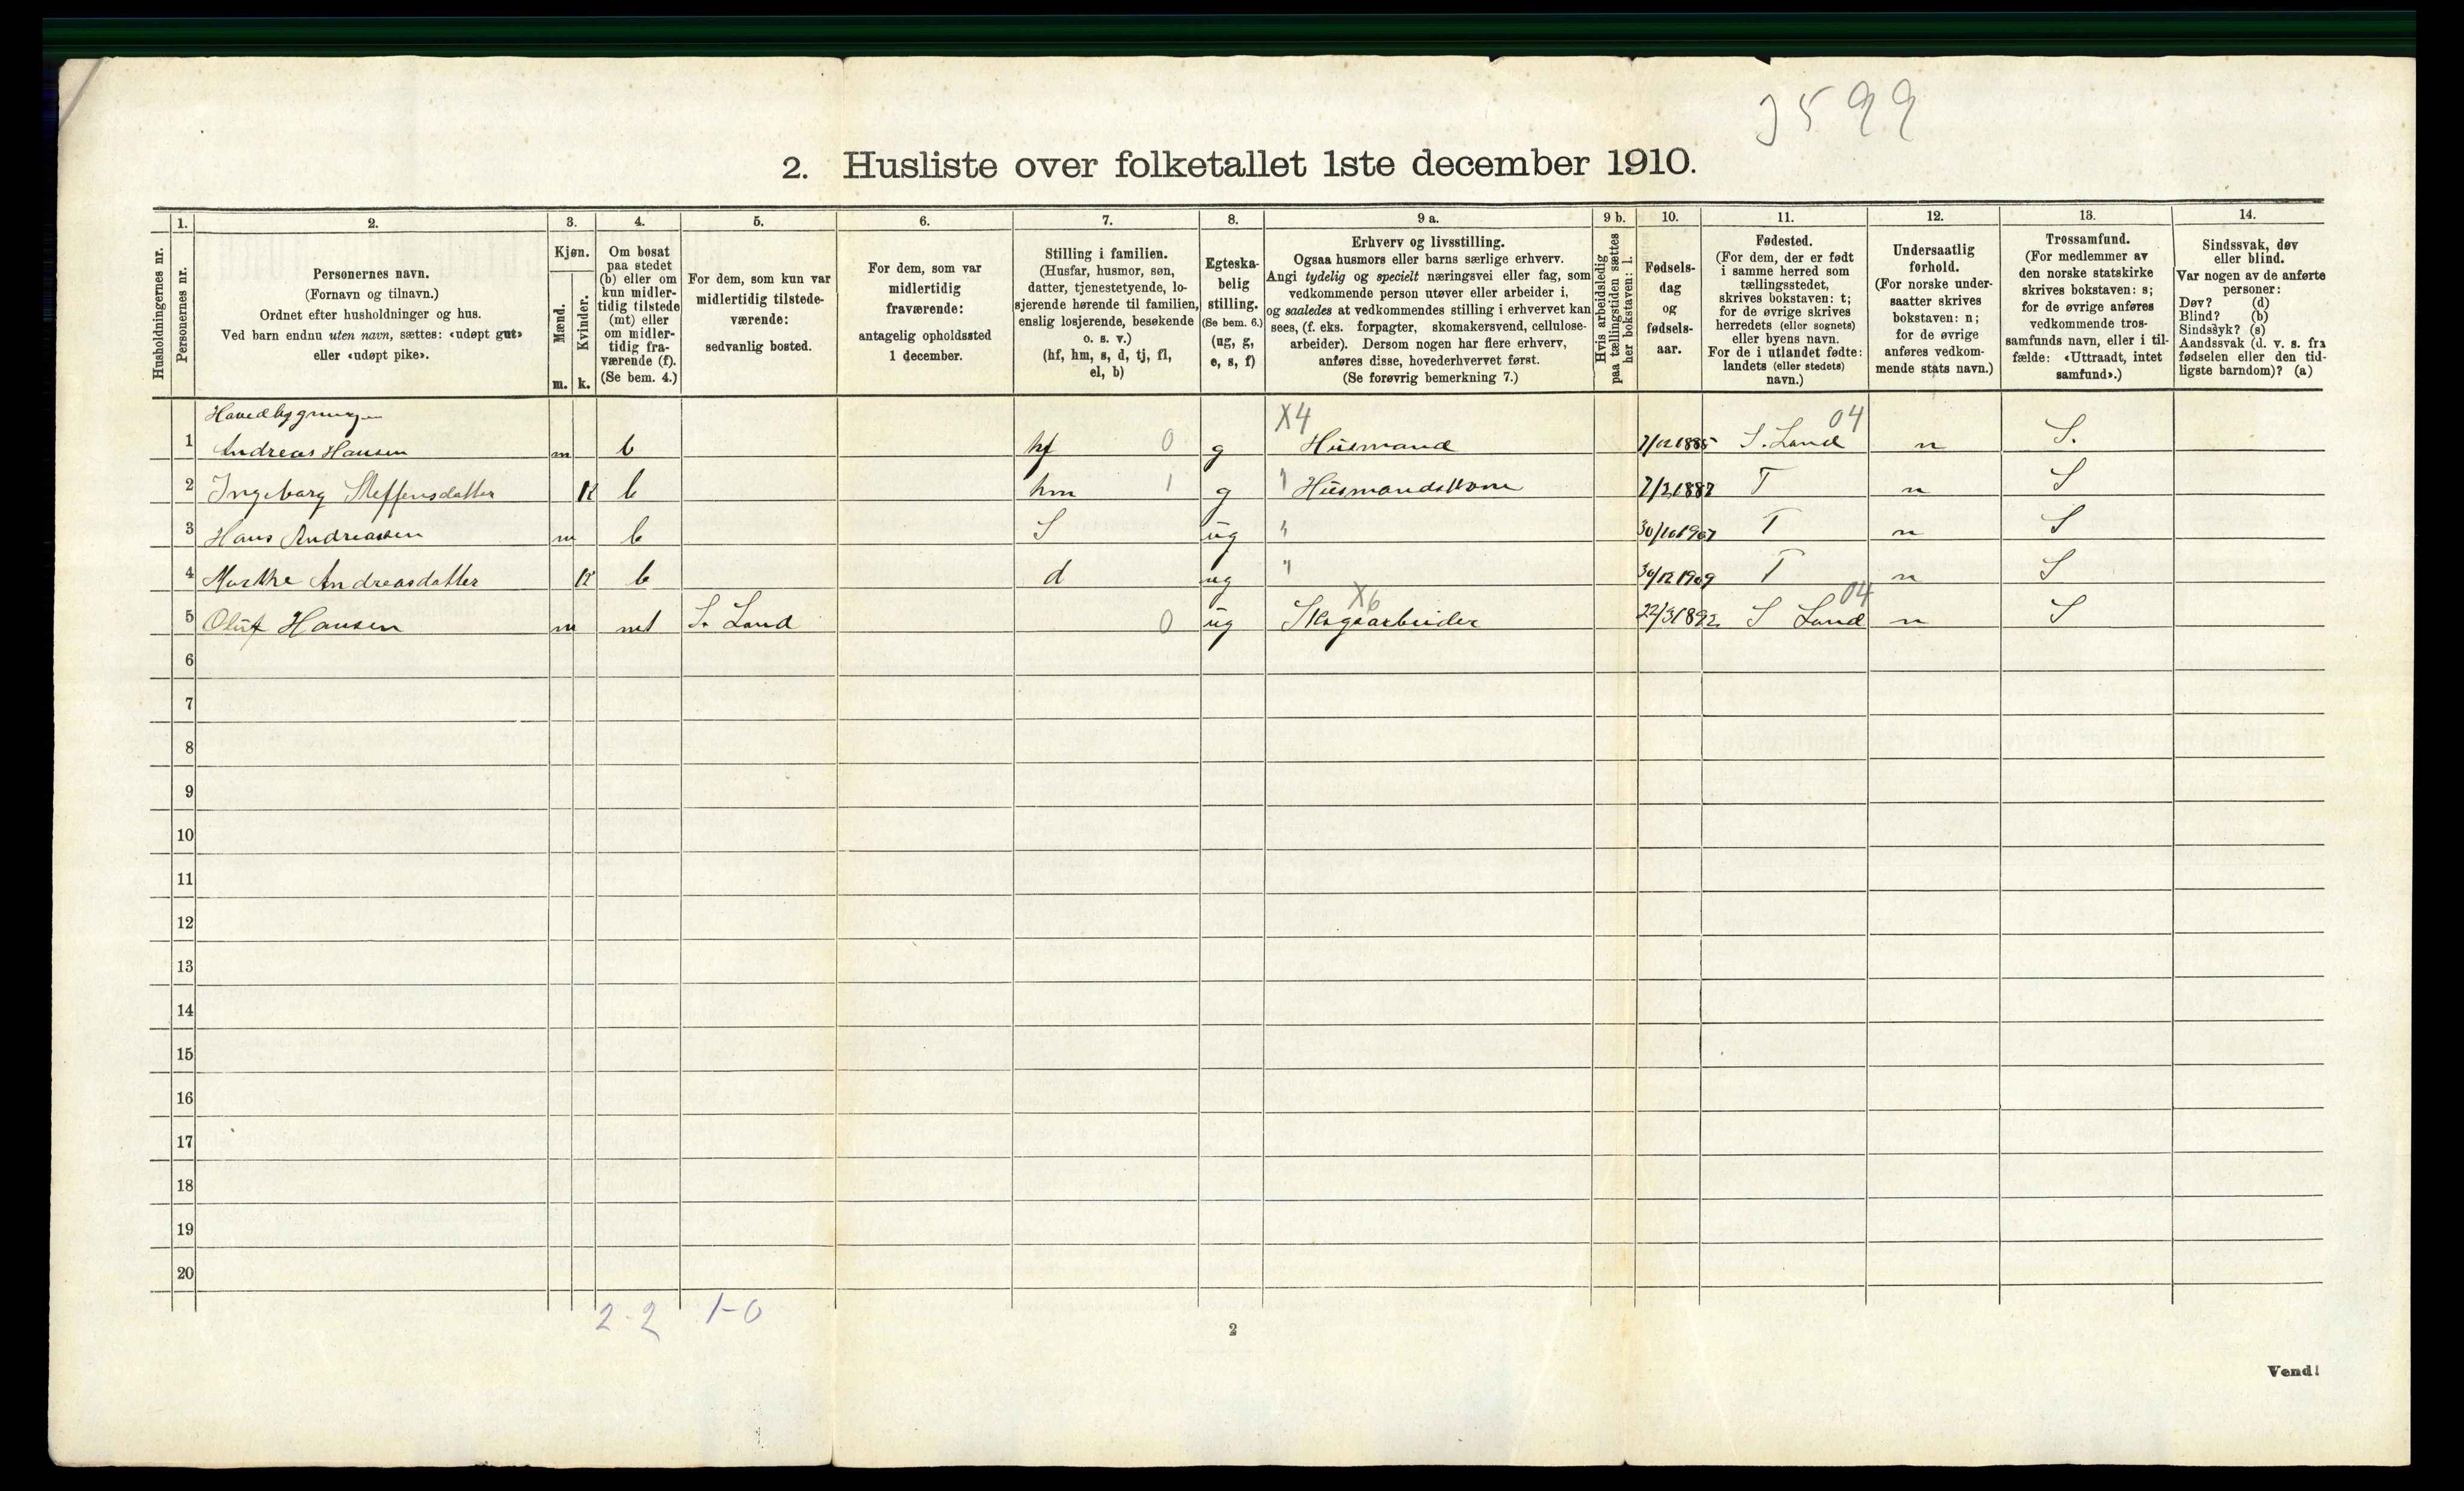 3599
2. Husliste over folketallet 1ste december 1910.
Husholdningernes nr.
1.
Personernes nr.
2.
Personernes navn.
(Fornavn og tilnavn.)
Ordnet efter husholdninger og hus.
Ved barn endnu uten navn, sættes: «udøpt gut»
eller «udøpt pike».
3.
Kjøn.
Mænd.
Kvinder.
m. k.
4.
Om bosat
paa stedet
(b) eller om
kun midler-
tidig tilstede
(mt) eller
om midler-
tidig fra-
værende (f).
(Se bem. 4.)
5.
For dem, som kun var
midlertidig tilstede-
værende:
sedvanlig bosted.
6.
For dem, som var
midlertidig
fraværende:
antagelig opholdssted
1 december.
7.
Stilling i familien.
(Husfar, husmor, søn,
datter, tjenestetyende, lo-
sjerende hørende til familien,
enslig losjerende, besøkende
o. s. v.)
(hf, hm, s, d, tj, fl,
el, b)
8.
Egteska-
belig
stilling.
(Se bem. 6.)
(ug, g,
e, s, f)
9 a.
Erhverv og livsstilling.
Ogsaa husmors eller barns særlige erhverv.
Angi tydelig og specielt næringsvei eller fag, som
vedkommende person utøver eller arbeider i,
og saaledes at vedkommendes stilling i erhvervet kan
sees, (f. eks. forpagter, skomakersvend, cellulose-
arbeider). Dersom nogen har flere erhverv,
anføres disse, hovederhvervet først.
(Se forøvrig bemerkning 7.)
9 b.
Hvis arbeidsledig
paa tællingstiden sættes
her bokstaven: l.
10.
Fødsels-
dag
og
fødsels-
aar.
11.
Fødested.
(For dem, der er født
i samme herred som
tællingsstedet,
skrives bokstaven: t;
for de øvrige skrives
herredets (eller sognets)
eller byens navn.
For de i utlandet fødte:
landets (eller stedets)
navn.)
12.
Undersaatlig
forhold.
(For norske under-
saatter skrives
bokstaven: n;
for de øvrige
anføres vedkom-
mende stats navn.)
13.
Trossamfund.
(For medlemmer av
den norske statskirke
skrives bokstaven: s;
for de øvrige anføres
vedkommende tros-
samfunds navn, eller i til-
fælde: «Uttraadt, intet
samfund».)
14.
Sindssvak, døv
eller blind.
Var nogen av de anførte
personer:
Døv? (d)
Blind? (b)
Sindssyk? (s)
Aandssvak (d. v. s. fra
fødselen eller den tid-
ligste barndom)? (a)
Hovedbygningen X4 04
1 Andreas Hansen m b hf 0 g Husmand 7/12 1885 S. Land n S.
2 Ingeborg Steffensdatter K b hm 1 g " Husmandskone T n S
3 Hans Andreassen m b S ug " 30/10 1907 T n S
4 Marthe Andreasdatter K b d ug " 30/12 1909 T n S
X6 04
5 Oluf Hansen m mt S. Land 0 ug Skogsarbeider 22/3 1892 S Land n S
6
7
8
9
10
11
12
13
14
15
16
17
18
19
20
2-2 1-0
2
Vend!